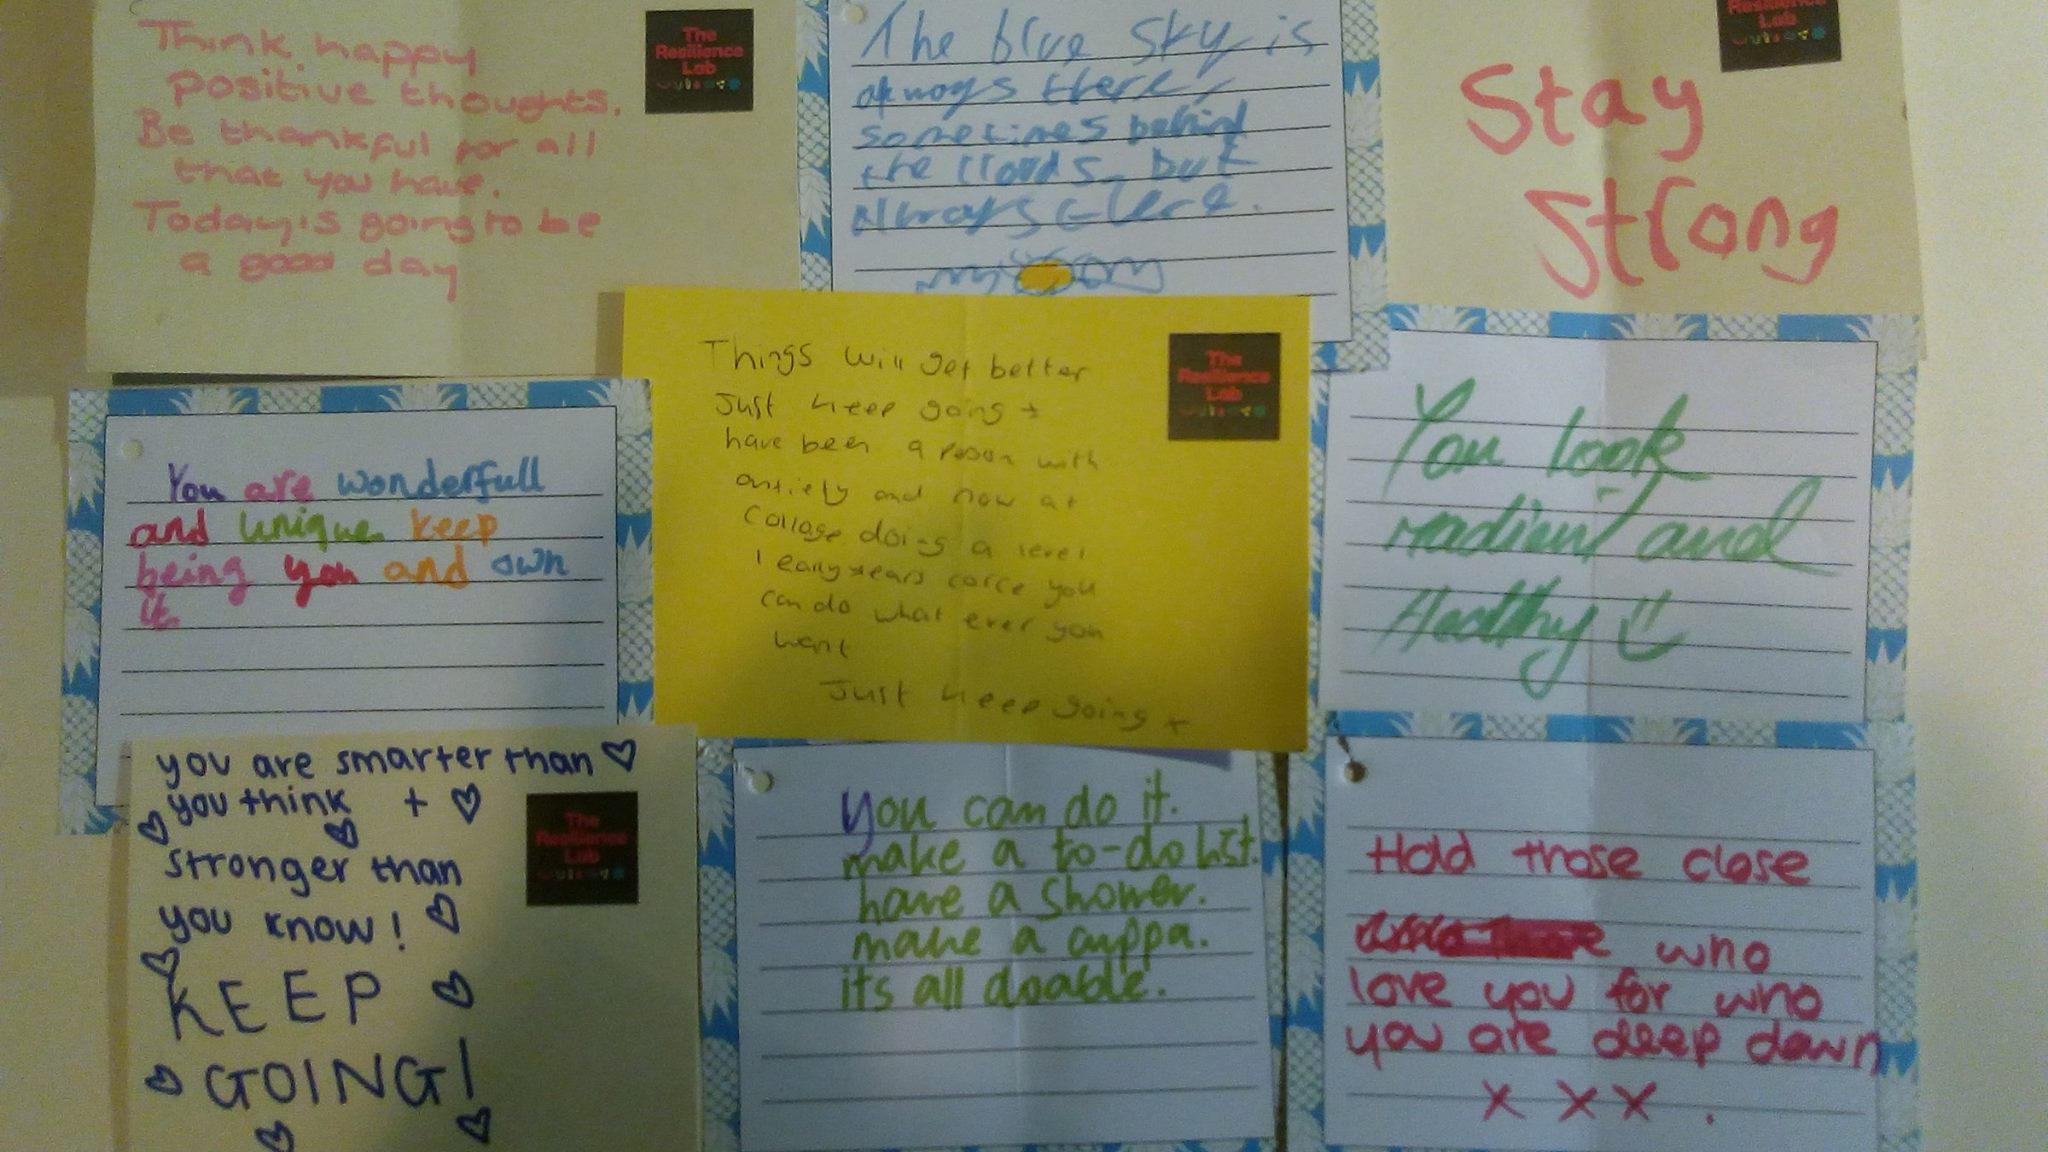 Think happy
positive thoughts.
Be thankful for all
that you have.
Today is going to be
a good day
The
Resilience
Lab
The blue sky is
always there,
sometimes behind
the clouds, but
Always there.
Resilience
Lab
Stay
Strong
You are wonderfull
and unique keep
being you and own
it
Things will get better
Just keep going
have been a person with
anxiety and now at
collage doing a level
1 early years corce you
can do what ever you
want
Just keep going x
The
Resilience
Lab
You look
radient and
Healthy
you are smarter than
you think +
stronger than
you know!
KEEP
GOING!
The
Resilience
Lab
you can do it.
make a to-do list.
have a shower.
make a cuppa.
its all doable.
Hold those close
who
love you for who
you are deep down
x x x .